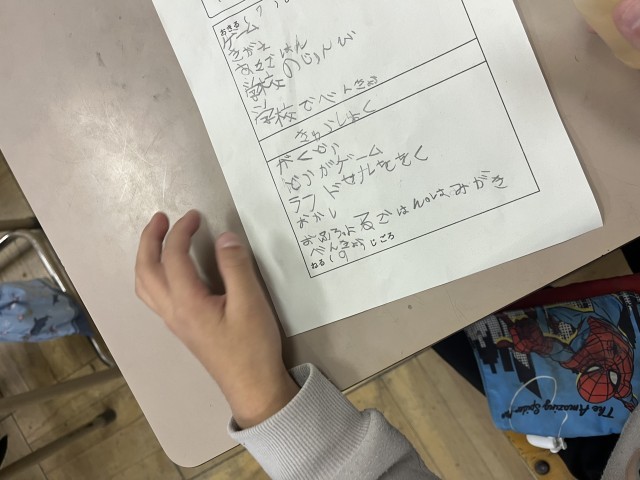 おきる(7)
ゲーム
きがえ
あさごはん
学校のじゅんび
学校でべんきょう
きゅうしょく
がくどう
ゲーム
ランドセルをおく
おかし
おふろよるごはんはみがき
べんきょう
ねる(9)じごろ
The Amazing Spider-Man